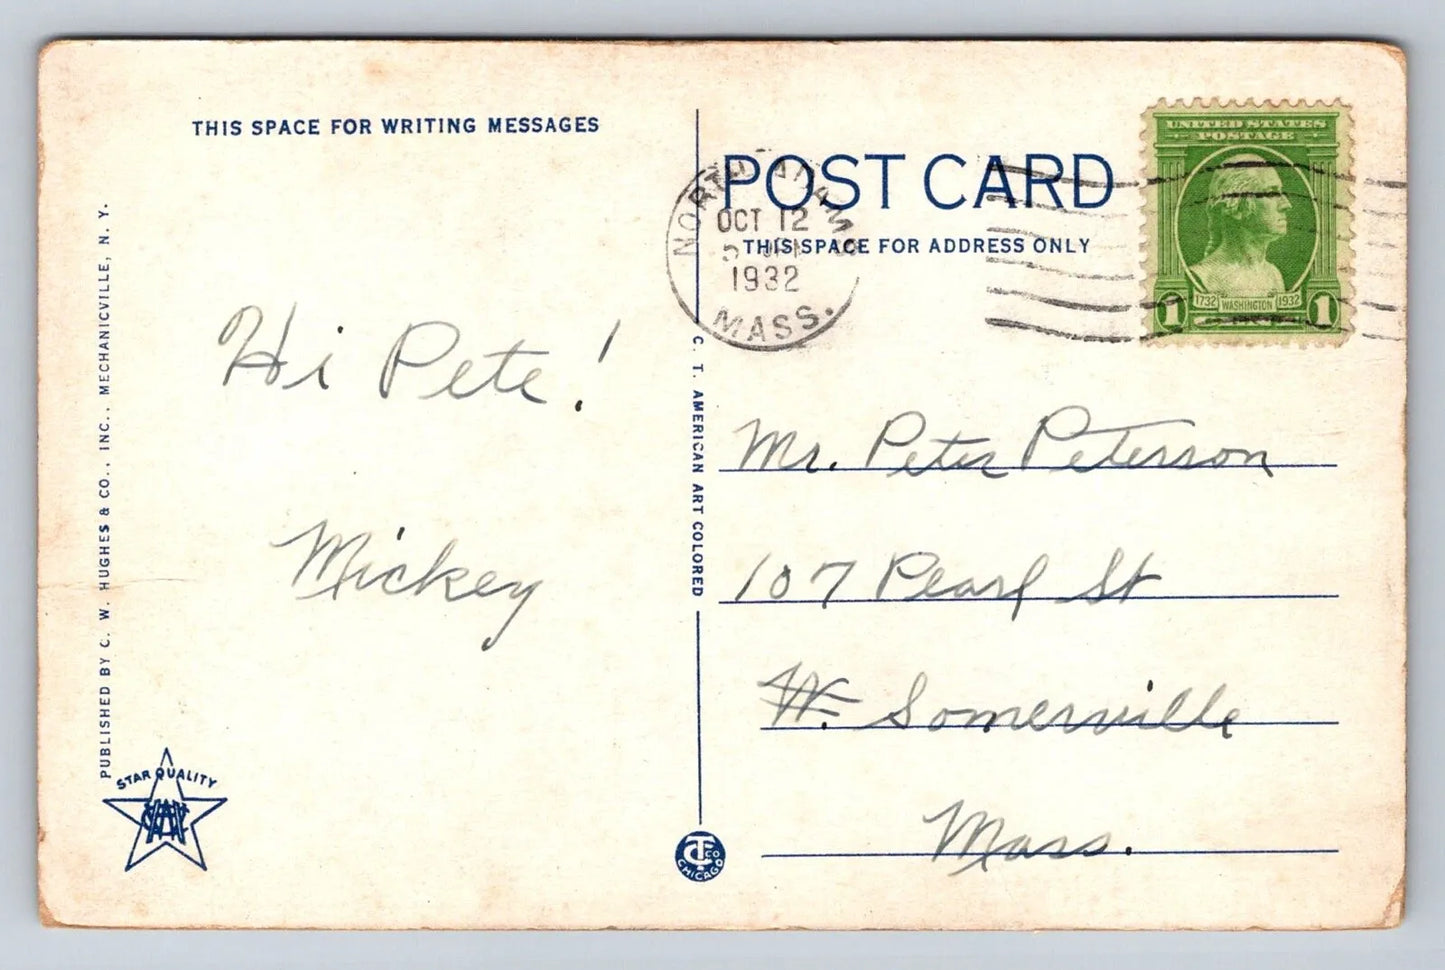 THIS SPACE FOR WRITING MESSAGES
POST CARD
THIS SPACE FOR ADDRESS ONLY
UNITED STATES
POSTAGE
1732 WASHINGTON 1932
1 1
NORTH ADAMS
OCT 12
1932
MASS.
Hi Pete!
Mickey
Mr. Peter Peterson
107 Pearl St
W. Somerville
Mass.
PUBLISHED BY C. W. HUGHES & CO., INC., MECHANICVILLE, N. Y.
C. T. AMERICAN ART COLORED
STAR QUALITY
CT CO
CHICAGO